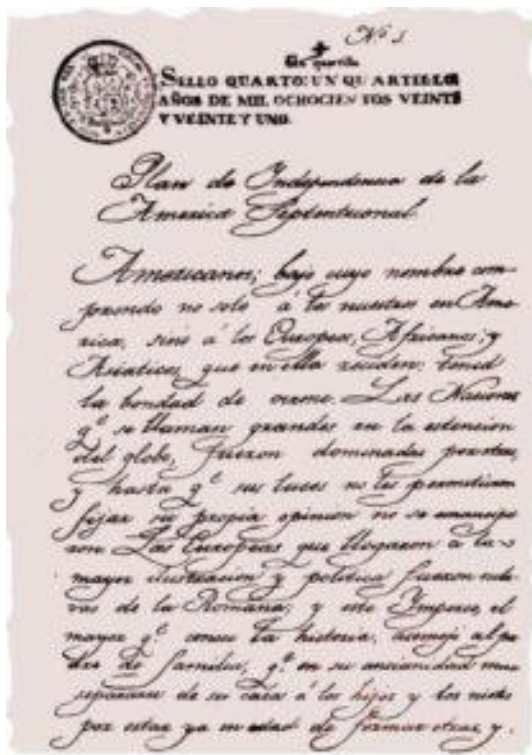 Nº 1
Un quartillo
SELLO QUARTO: UN QUARTILLO
AÑOS DE MIL OCHOCIENTOS VEINTE
Y VEINTE Y UNO.
Plan de Independencia de la
America Septentrional.
Americanos; bajo cuyo nombre com-
prendo no solo á los nacidos en Ame-
rica, sino á los Europeos, Africanos, y
Asiaticos, que en ella residen: tened
la bondad de oirme. Las Naciones
q.e se llaman grandes en la estension
del globo, fueron dominadas por otras,
y hasta q.e sus luces no les permitieron
fijar su propia opinion no se emancipa
ron. Las Europeas que llegaron á la
mayor ilustracion y politica fueron escla
vas de la Romana; y este Imperio, el
mayor q.e conoce la historia, asemejó al pa
dre de familias, q.e en su ancianidad mira
separarse de su casa á los hijos y los nietos
por estar ya en edad de formar otras, y